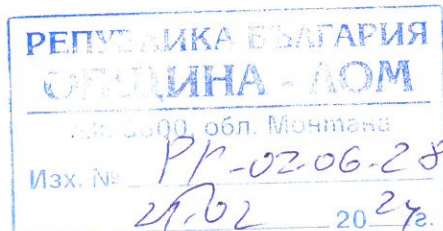 РЕПУБЛИКА БЪЛГАРИЯ
ОБЩИНА - ЛОМ
п.к. 3600, обл. Монтана
Изх. № РГ-02-06-28
20 24 г.